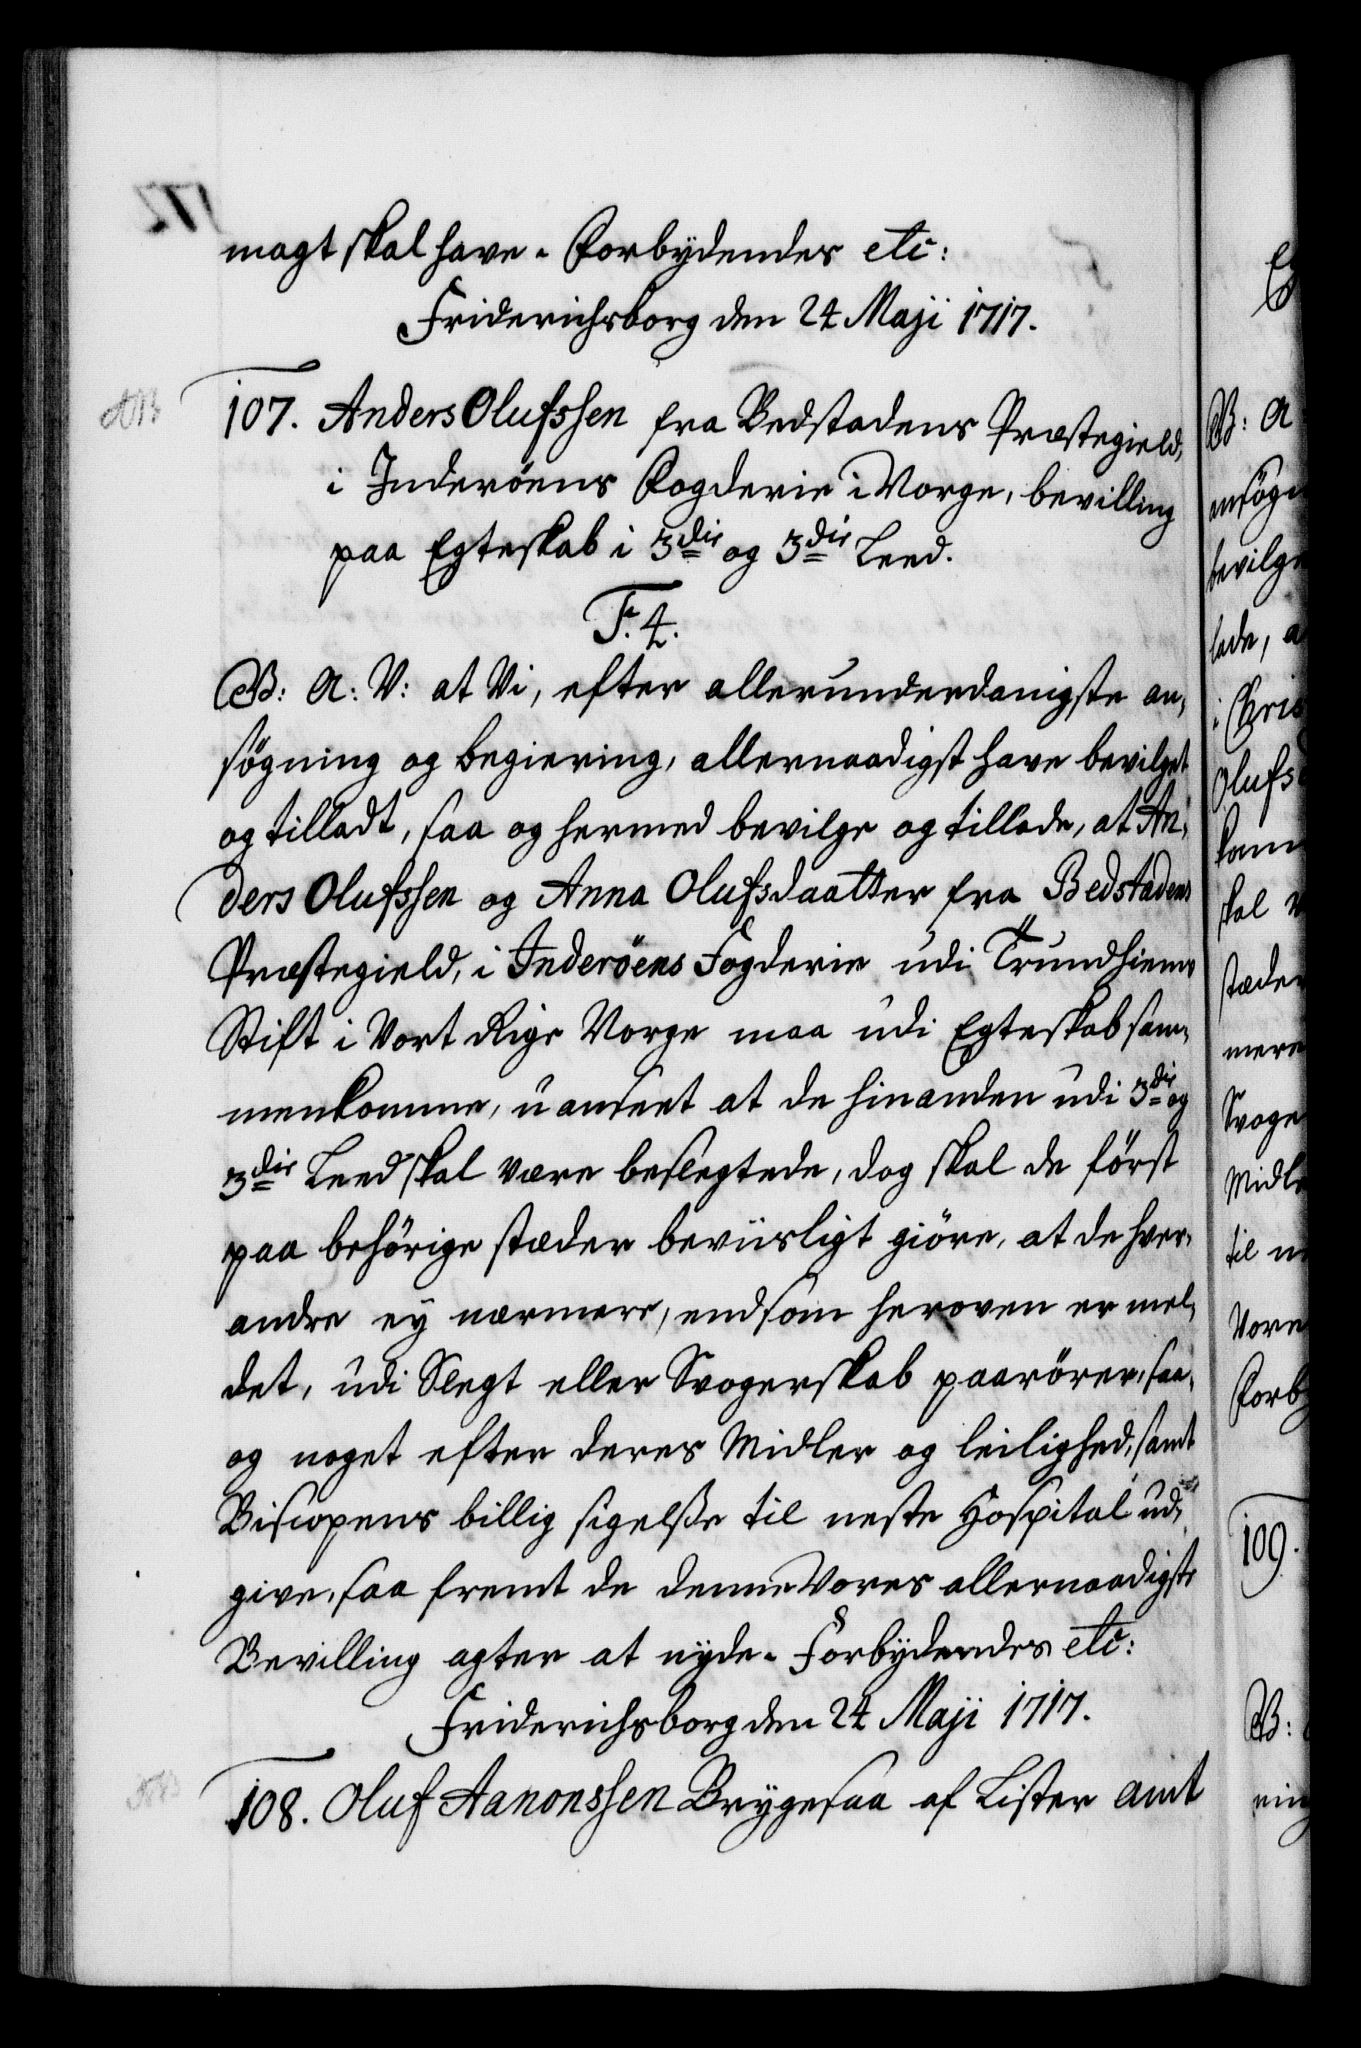 magt skal have. Forbydendes etc:
Friderichsborg den 24 Maji 1717.
107. Anders Olufssen fra Bedstadens Præstegield,
i Inderöens Fogderie i Norge, bevilling
paa Egteskab i 3die og 3die Leed.
F. 4.
W: A: V: at Vi, efter allerunderdanigste an,
søgning og begiering, allernaadigst have bevilget
og tilladt, saa og hermed bevilge og tillade, at An,
ders Olufssen og Anna Olufsdaatter fra Bedstadens
Præstegield, i Inderöens Fogderie udi Trundhiems
Stift i Vort Rige Norge maa udi Egteskab sam,
menkomme, uanseet at de hinanden udi 3die og
3die Leed skal være beslegtede, dog skal de först
paa behörige stæder beviisligt giöre, at de hver,
andre ey nærmere, end som heroven er mel,
det, udi Slegt eller Svogerskab paarörer, saa,
og noget efter deres Midler og leilighed, samt
Biscopens billig sigelsse til neste Hospital ud,
give, saa fremt de denne Vores allernaadigste
Bevilling agter at nyde. Forbydendes etc:
Friderichsborg den 24 Maji 1717.
108. Oluf Aanonssen Brygesaa af Lister amt